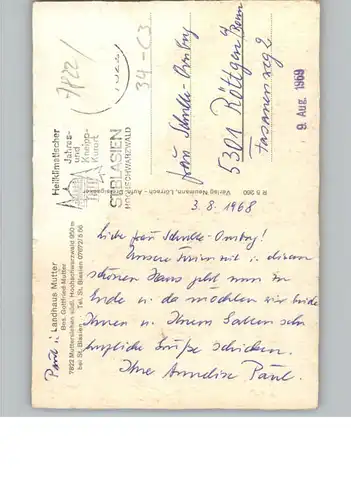 Heilklimatischer
Jahres-
und
Kneipp-
Kurort
ST.BLASIEN
HOCHSCHWARZWALD
7822
34-C3
Frau Schulte-Ombry
5301 Röttgen/Bonn
Fasanenweg 2
9. Aug. 1968
R 5 260 Verlag Neumann, Lörrach
Paul i. Landhaus Mutter
Bes. Gottfried Mutter
7822 Muttersleben südl. Hochschwarzwald 950 m
bei St. Blasien Tel. St. Blasien 07672/5 06
3.8.1968
Liebe Frau Schulte-Ombry!
Unsere Ferien mit u. diesem
schönen Haus geht nun zu
Ende u. da möchten wir beide
Ihnen u. Ihrem Gatten sehr
herzliche Grüße schicken.
Ihre Annelise Paul.